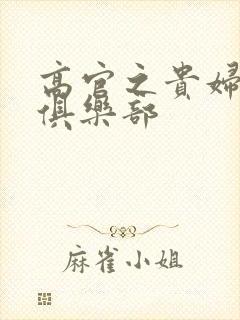 高官之貴婦
俱樂部
麻雀小姐